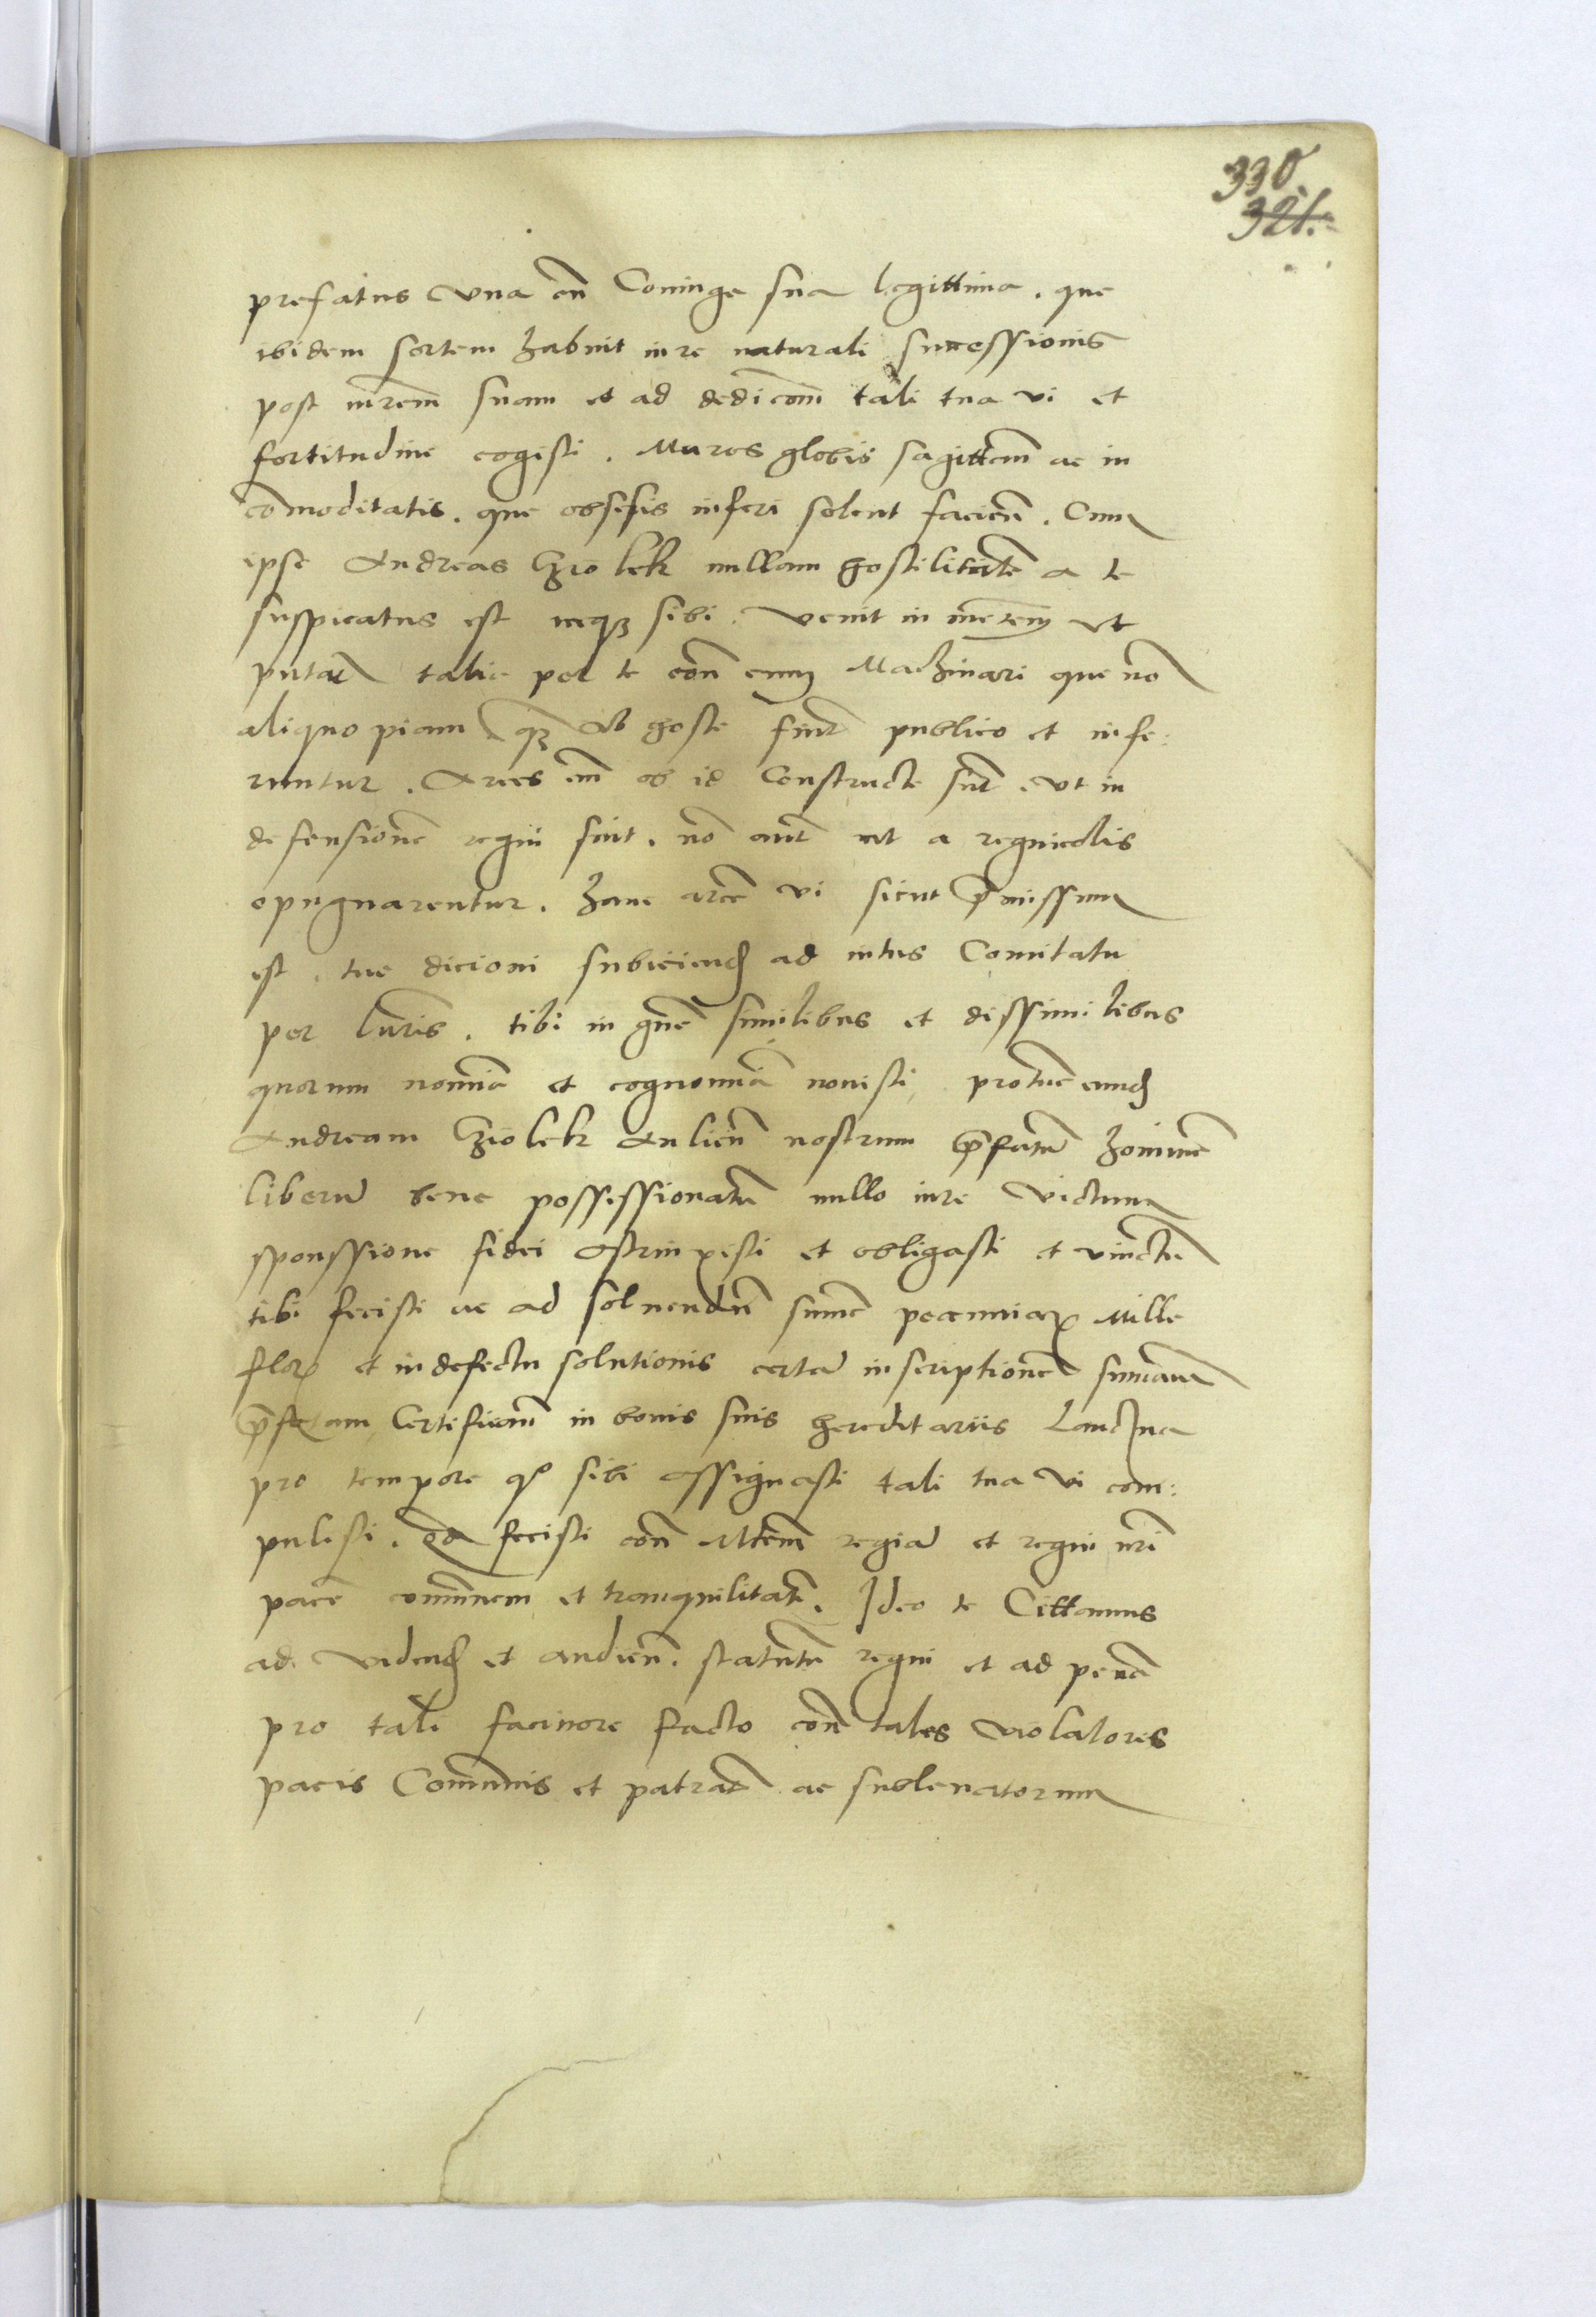 330
321.
prefatus vna cũ Coniuge sua legittima . que
ibidem sortem habuit iure naturali successionis
post mrem̃ suam et ad dedicom̃ tali tua vi et
fortitudine cogisti . Muros globis sagittem̃ ac in
cõmoditatis . que obsesis inferi solent facien̄ . Cum
ipse Andreas Czolek nullam hostilitatẽ a te
suspicatus est neqꝫ sibi venit in mentem vt
putaret talie per te con̄ eum Machinari que nõ
aliquo piam qꝫ ab hoste fiunt publico et infe:
runtur . Arces em̃ ob id Constructe sũt . vt in
defensionẽ regni sint . nõ aũt ut a regnicolis
opugnarentur . hanc arcẽ vi sicut p̃missum
est . tue dicioni subiiciend̃ ad intus Comitatu
per luris . tibi in gñe similibus et dissimilibus
quorum nomĩa et cognomĩa nouisti protunc eund̃
Andream Cziolek Aulicũ nostrum p̃fatũ hominẽ
liberũ bene possessionatũ nullo iure victum
sponssione fidei astrinxisti et obligasti et vinctũ
tibi fecisti ac ad soluendũ summã pecuniarꝫ Mille
florꝫ et in defectu solutionis certã inscriptionẽ summam
p̃fatam Certificom̃ in bonis suis hereditariis
pro tempore qᵒ sibi assignasti tali tua vi com:
pulisti . qd̃ fecisti con̄ Mtem̃ regiã et regni nr̃i
pacẽ com̃unem et tranquilitatẽ . Ideo te Cittamus
ad videnð et audien̄ . statutũ regni et ad penã
pro tali facinore facto con̄ tales violatores
pacis Com̃unis et patrat̃ ac subleuatorum